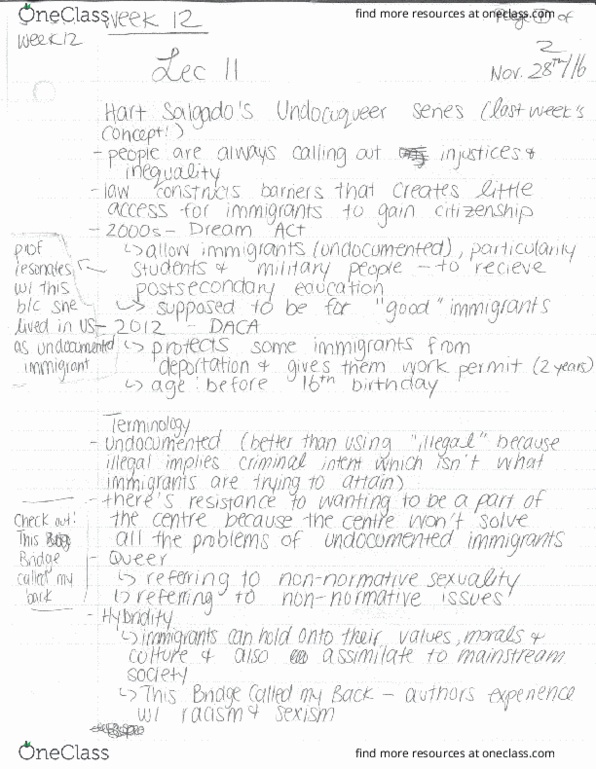 OneClass
find more resources at oneclass.com
Week 12
Page 1 of 2
Week 12
Lec 11
Nov. 28th/16
Hart Salgado's Undocuqueer series (last week's
concept!)
- people are always calling out injustices &
inequality
- law constructs barriers that creates little
access for immigrants to gain citizenship
- 2000s - Dream Act
↳ allow immigrants (undocumented), particularly
students & military people - to recieve
postsecondary education
↳ supposed to be for "good" immigrants
prof
resonates
w/ this
b/c she
lived in US
as undocumented
immigrant
- 2012 - DACA
↳ protects some immigrants from
deportation & gives them work permit (2 years)
↳ age: before 16th birthday
Terminology
- undocumented (better than using "illegal" because
illegal implies criminal intent which isn't what
immigrants are trying to attain)
- there's resistance to wanting to be a part of
the centre because the centre won't solve
all the problems of undocumented immigrants
Check out!
This
Bridge
called my
back
- Queer
↳ referring to non-normative sexuality
↳ referring to non-normative issues
- Hybridity
↳ immigrants can hold onto their values, morals &
culture & also assimilate to mainstream
society
↳ This Bridge Called my Back - authors experience
w/ racism & sexism
OneClass
find more resources at oneclass.com